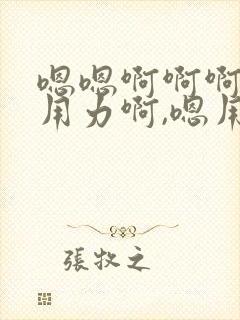 嗯嗯啊啊啊
用力啊,嗯用
張牧之